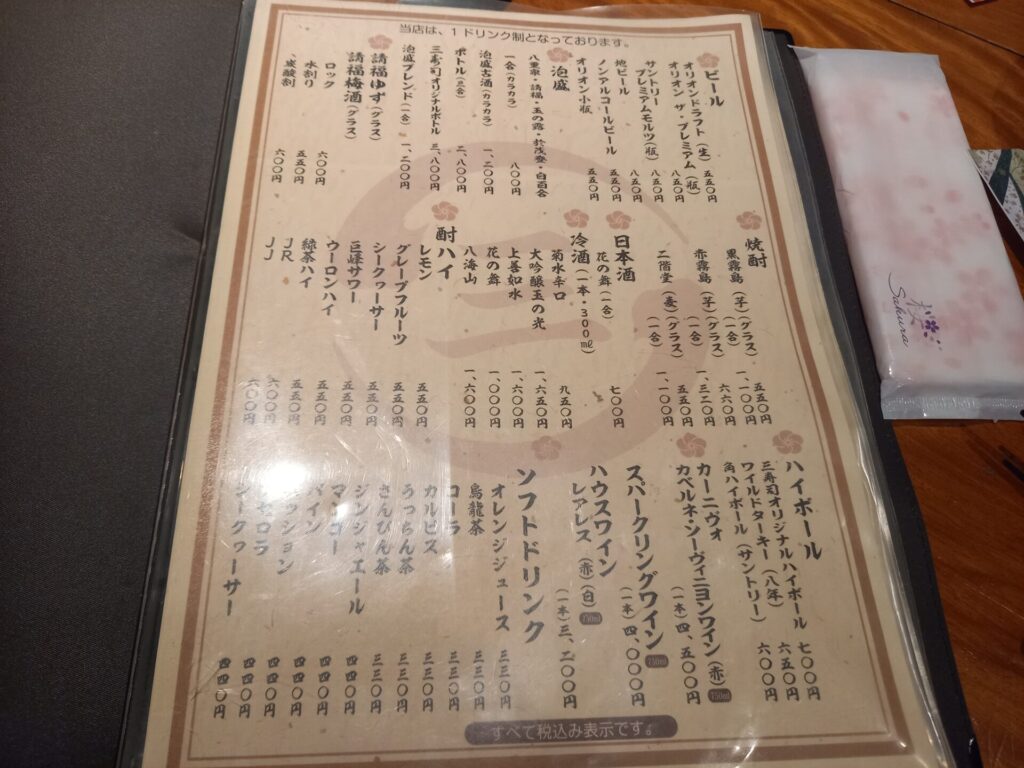 当店は、1ドリンク制となっております。
ビール
オリオンドラフト(生) 五五〇円
オリオン ザ・プレミアム(瓶) 八五〇円
サントリー
プレミアムモルツ(瓶) 八五〇円
地ビール 八五〇円
ノンアルコールビール 五五〇円
オリオン小瓶 五五〇円
泡盛
八重泉・請福・玉の露・於茂登・白百合
一合(カラカラ) 八〇〇円
泡盛古酒(カラカラ) 一、二〇〇円
ボトル(三合) 二、八〇〇円
三寿司オリジナルボトル 三、八〇〇円
泡盛ブレンド(一合) 一、二〇〇円
請福ゆず(グラス)
請福梅酒(グラス)
ロック 六〇〇円
水割り 五五〇円
、炭酸割 六〇〇円
焼酎
黒霧島(芋)(グラス) 五五〇円
(一合) 一、一〇〇円
赤霧島(芋)(グラス) 六六〇円
(一合) 一、三二〇円
二階堂(麦)(グラス) 五五〇円
(一合) 一、一〇〇円
日本酒
花の舞(一合) 七〇〇円
冷酒(一本・300ml)
菊水辛口 九五〇円
大吟醸玉の光 一、六五〇円
上善如水 一、六〇〇円
花の舞 一、〇〇〇円
八海山 一、六〇〇円
酎ハイ
レモン 五五〇円
グレープフルーツ 五五〇円
シークヮーサー 五五〇円
巨峰サワー 五五〇円
ウーロンハイ 五五〇円
緑茶ハイ 五五〇円
JR 六〇〇円
JJ 六〇〇円
ハイボール
三寿司オリジナルハイボール 七〇〇円
ワイルドターキー(八年) 六五〇円
角ハイボール(サントリー) 六〇〇円
カーニヴォ
カベルネ・ソーヴィニヨンワイン(赤) 750ml
(一本) 四、五〇〇円
スパークリングワイン 750ml
(一本) 四、〇〇〇円
ハウスワイン
レアレス(赤)(白) 750ml
(一本) 三、二〇〇円
ソフトドリンク
オレンジジュース 三三〇円
烏龍茶 三三〇円
コーラ 三三〇円
カルピス 三三〇円
うっちん茶 三三〇円
さんぴん茶 三三〇円
ジンジャエール 四四〇円
マンゴー 四四〇円
パイン 四四〇円
ッション 四四〇円
セロラ 四四〇円
シークヮーサー 四四〇円
すべて税込み表示です。
桜
Sakura